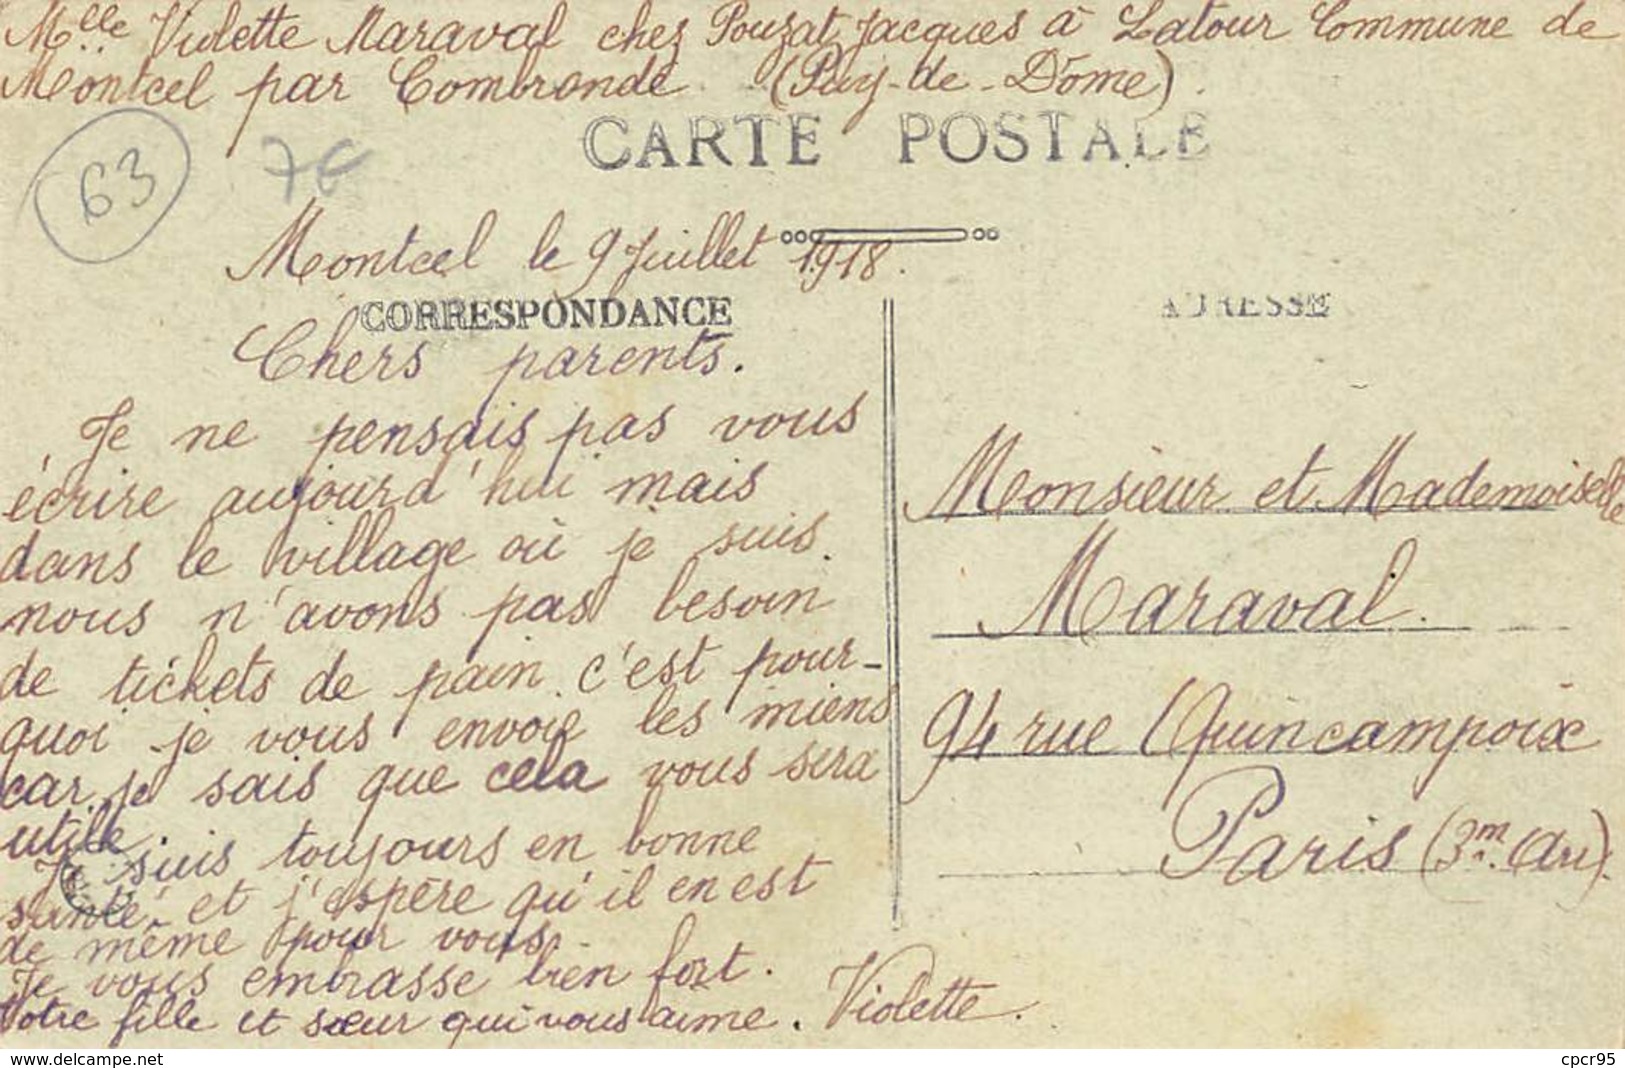 Mlle Violette Maraval chez Pouzat Jacques à Latour Commune de
Montcel par Combronde. (Puy-de-Dôme).
CARTE POSTALE
63
7€
Montcel le 9 Juillet 1918.
CORRESPONDANCE
Chers parents.
Je ne pensais pas vous
écrire aujourd'hui mais
dans le village où je suis
nous n'avons pas besoin
de tickets de pain c'est pour-
quoi je vous envoie les miens
car je sais que cela vous sera
utile.
Je suis toujours en bonne
santé et j'espère qu'il en est
de même pour vous.
Je vous embrasse bien fort.
Votre fille et sœur qui vous aime. Violette.
ADRESSE
Monsieur et Mademoiselle
Maraval.
94 rue Quincampoix
Paris (3m Arr).
www.delcampe.net
cpcr95